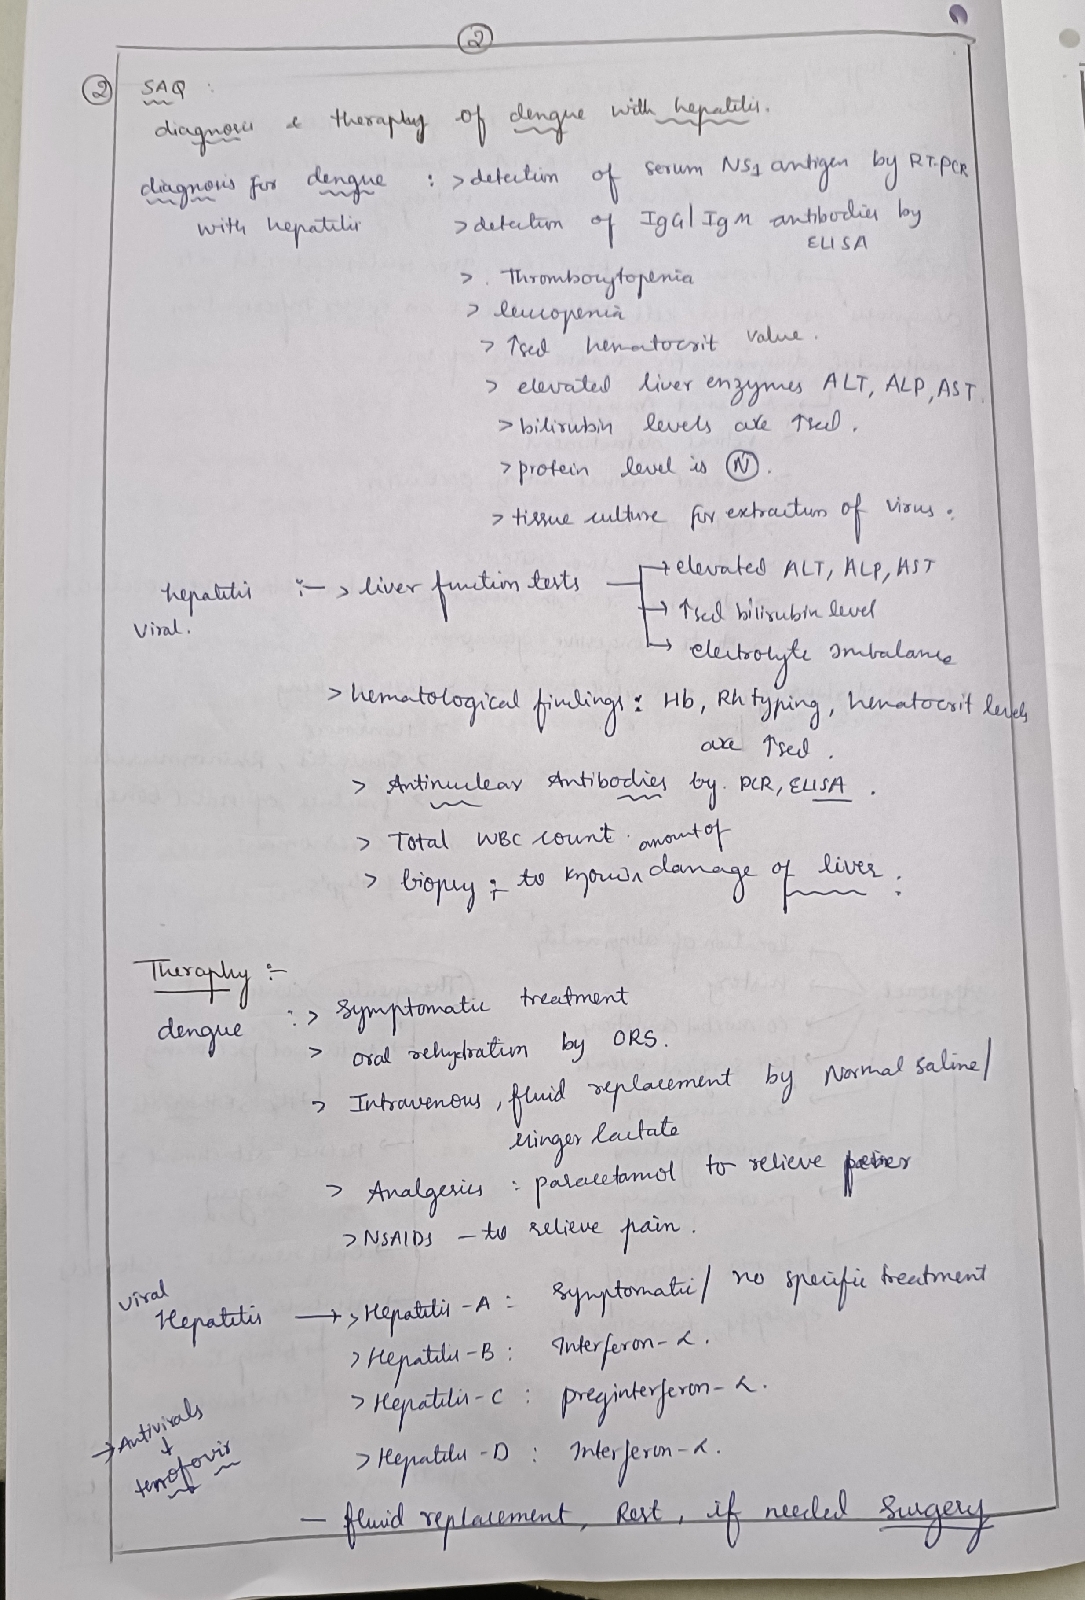 ②
② SAQ :
diagnosis & theraphy of dengue with hepatitis.
diagnosis for dengue : > detection of serum NS1 antigen by RT-PCR
with hepatitis > detection of IgG/IgM antibodies by
ELISA
> Thrombocytopenia
> leucopenia
> ↑sed hematocrit value.
> elevated liver enzymes ALT, ALP, AST.
> bilirubin levels are ↑sed.
> protein level is Ⓝ.
> tissue culture for extraction of virus.
hepatitis :- > liver function tests → elevated ALT, ALP, AST
viral. → ↑sed bilirubin level
→ electrolyte imbalance
> hematological findings : Hb, Rh typing, hematocrit levels
are ↑sed.
> Antinuclear Antibodies by PCR, ELISA.
> Total WBC count. amount of
> biopsy : to known damage of liver.
Theraphy :-
dengue : > symptomatic treatment
> oral rehydration by ORS.
> Intravenous, fluid replacement by Normal Saline/
ringer lactate
> Analgesics : paracetamol to relieve
> NSAIDs - to relieve pain.
viral
Hepatitis → > Hepatitis - A : symptomatic / no specific treatment
> Hepatitis - B : Interferon-α.
> Hepatitis - C : preginterferon-α.
→ Antivirals
↓
tenofovir
> Hepatitis - D : Interferon-α.
- fluid replacement, Rest, if needed Surgery